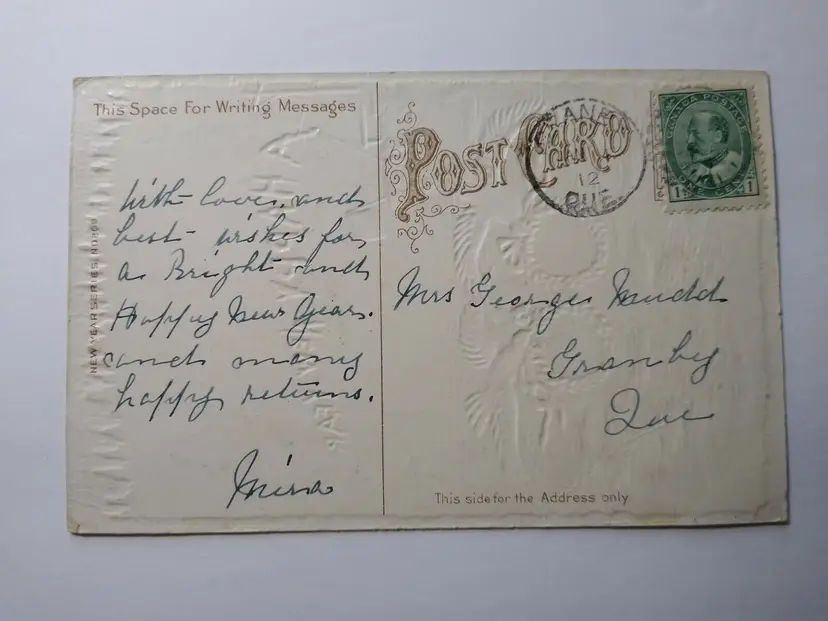 This Space For Writing Messages
With love, and
best wishes for
a Bright and
Happy New Year.
and many
happy returns.
Mina
NEW YEAR SERIES, NO 800
POST CARD
JAN
12
QUE
CANADA POSTAGE
ONE CENT
1 1
Mrs George Mudd
Granby
Que
This side for the Address only